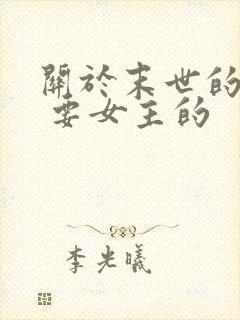 關於末世的
要女主的
李光曦